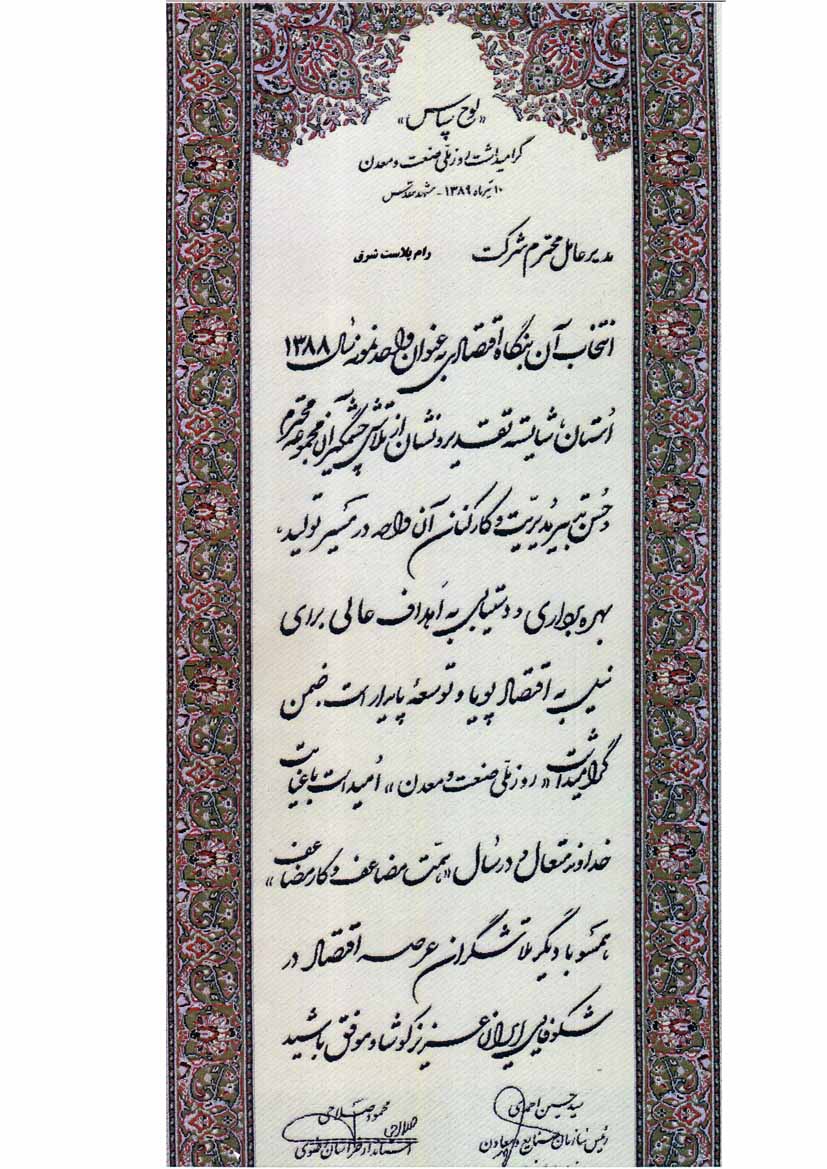 «لوح سپاس»
گرامیداشت روز ملّی صنعت و معدن
۱۰ تیر ماه ۱۳۸۹ - مشهد مقدس
مدیر عامل محترم شرکت رام پلاست شرق
انتخاب آن بنگاه اقتصادی به عنوان واحد نمونه سال ۱۳۸۸
اُستان، شایسته تقدیر و نشان از تلاش چشمگیر آن مجموعه محترم
و حُسن تدبیر مُدیریّت و کارکنان آن واحد در مَسیر تولید،
بهره برداری و دستیابی به اَهداف عالی برای
نیل به اقتصاد پویا و توسعهٔ پایدار است. ضمن
گرامیداشت «روز ملّی صنعت و معدن» اُمید است با عنایت
خداوند متعال و در سال «همّت مضاعف و کار مضاعف»
همسو با دیگر تلاشگران عرصه اقتصاد در
شکوفایی ایران عزیز کوشا و موفق باشید
سید حسین احمدی
رئیس سازمان صنایع و معادن
محمود صلاحی
استاندار خراسان رضوی